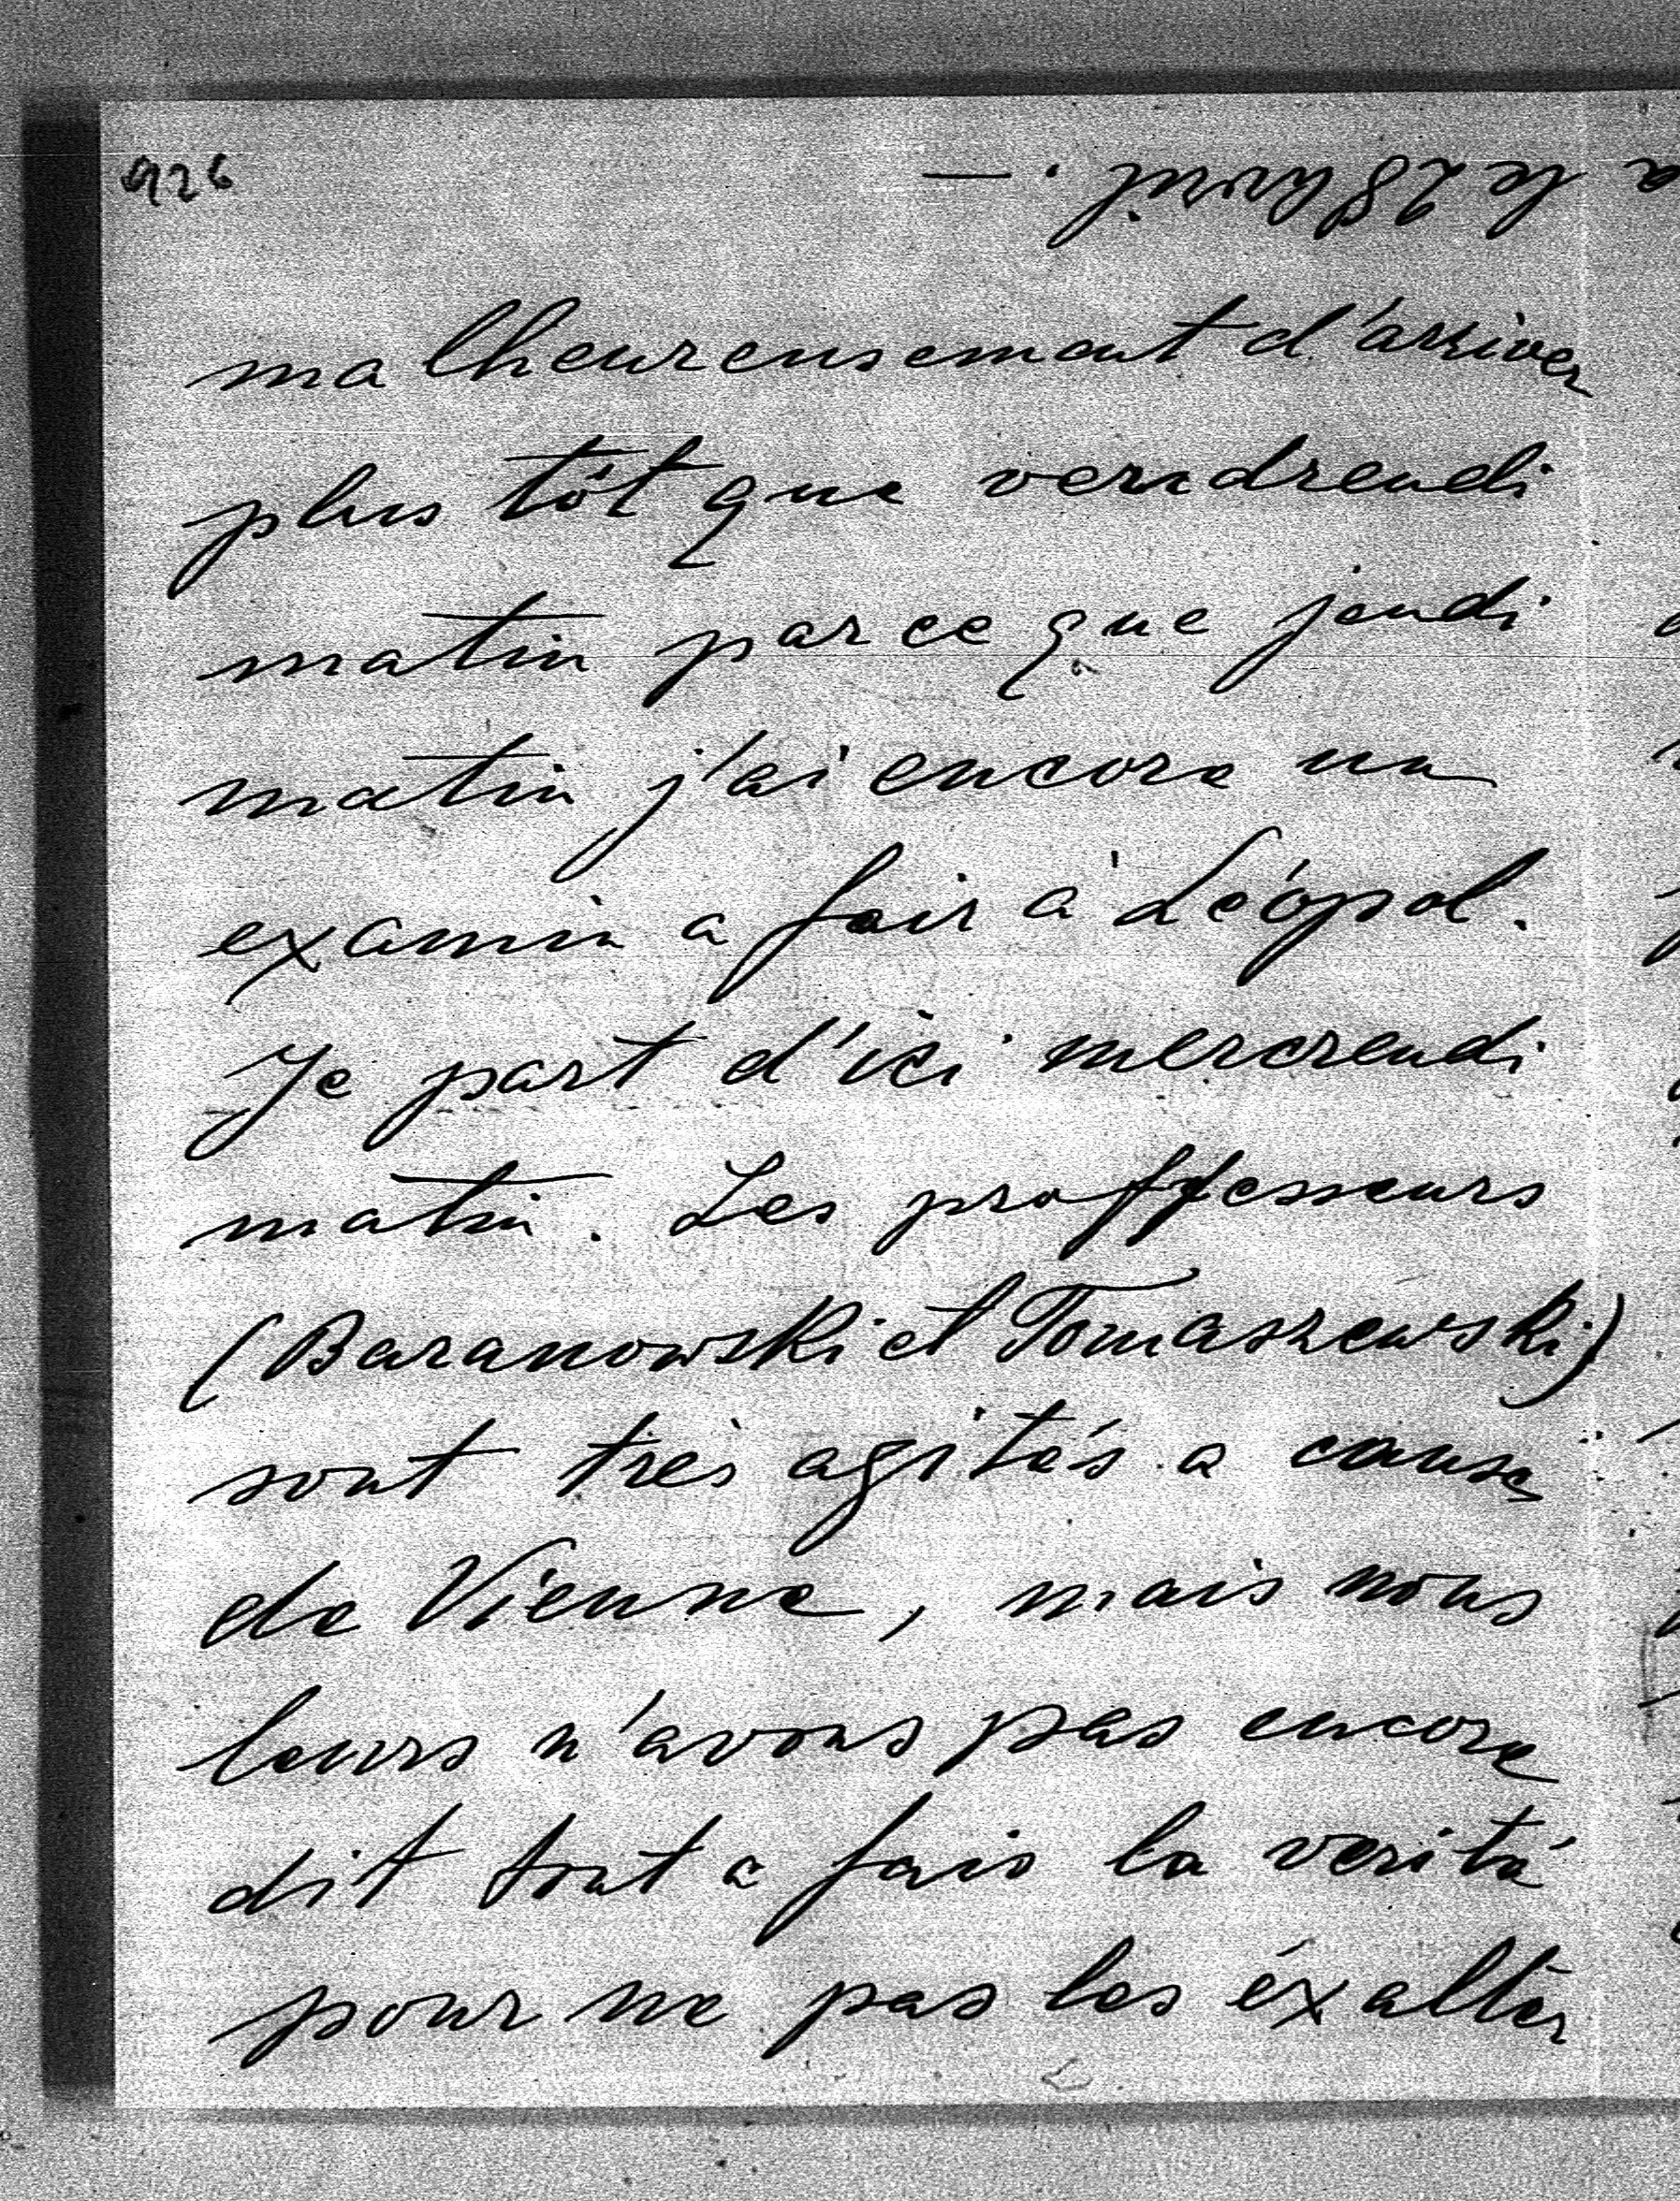 926
le 28 Avril. —
malheureusement d'arriver
plus tôt que vendrendi
matin parceque jeudi
matin j'ai encore un
examin a fair à Léópol.
Je part d'ici mercrendi
matin. Les proffesseurs
(Baranowski et Tomaszewski)
sont très agités a cause
de Vienne, mais nous
leurs n'avons pas encore
dit tout a fais la verité
pour ne pas les éxalter